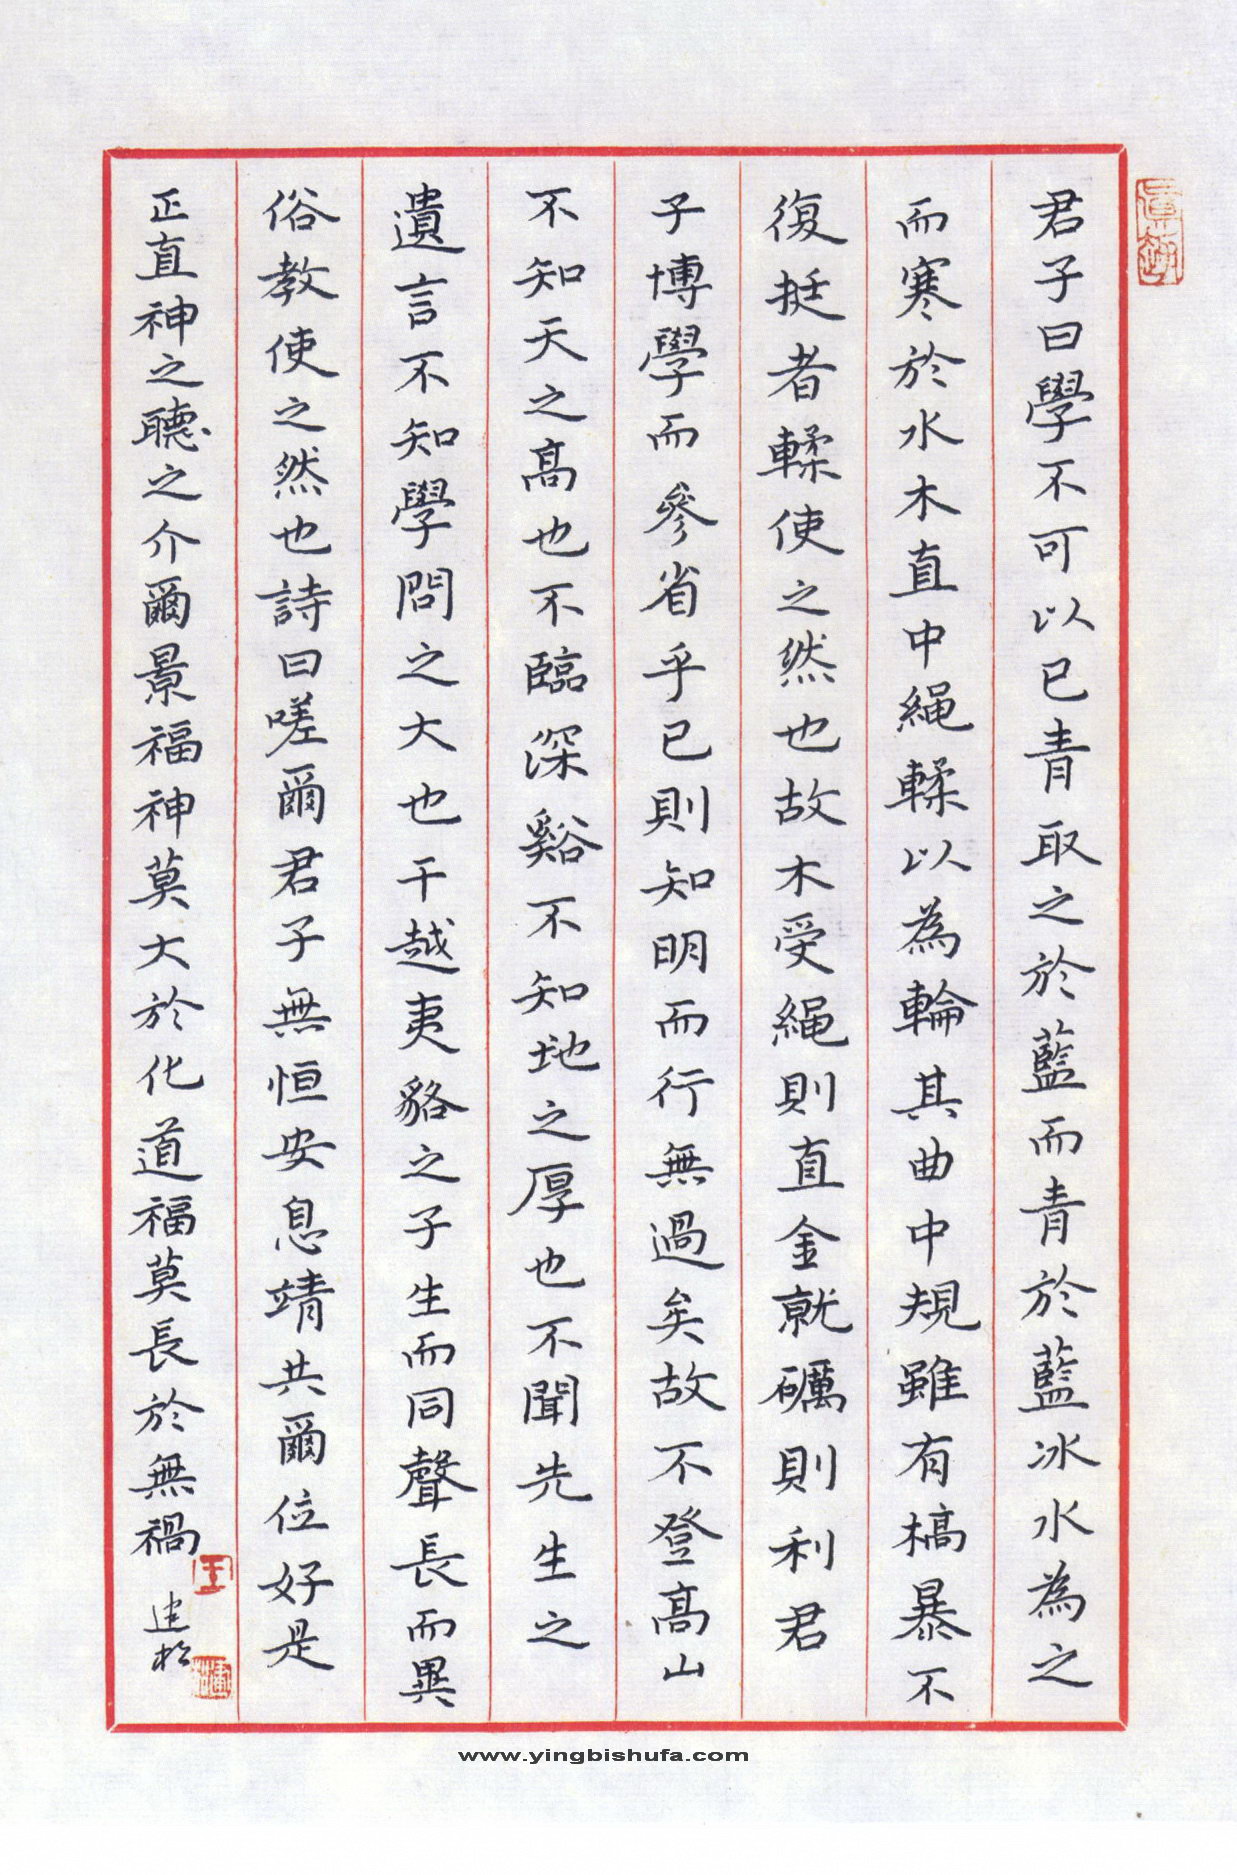 君子曰學不可以已青取之於藍而青於藍冰水為之
而寒於水木直中繩輮以為輪其曲中規雖有槁暴不
復挺者輮使之然也故木受繩則直金就礪則利君
子博學而參省乎己則知明而行無過矣故不登高山
不知天之高也不臨深谿不知地之厚也不聞先生之
遺言不知學問之大也干越夷貉之子生而同聲長而異
俗教使之然也詩曰嗟爾君子無恒安息靖共爾位好是
正直神之聽之介爾景福神莫大於化道福莫長於無禍
建松
www.yingbishufa.com